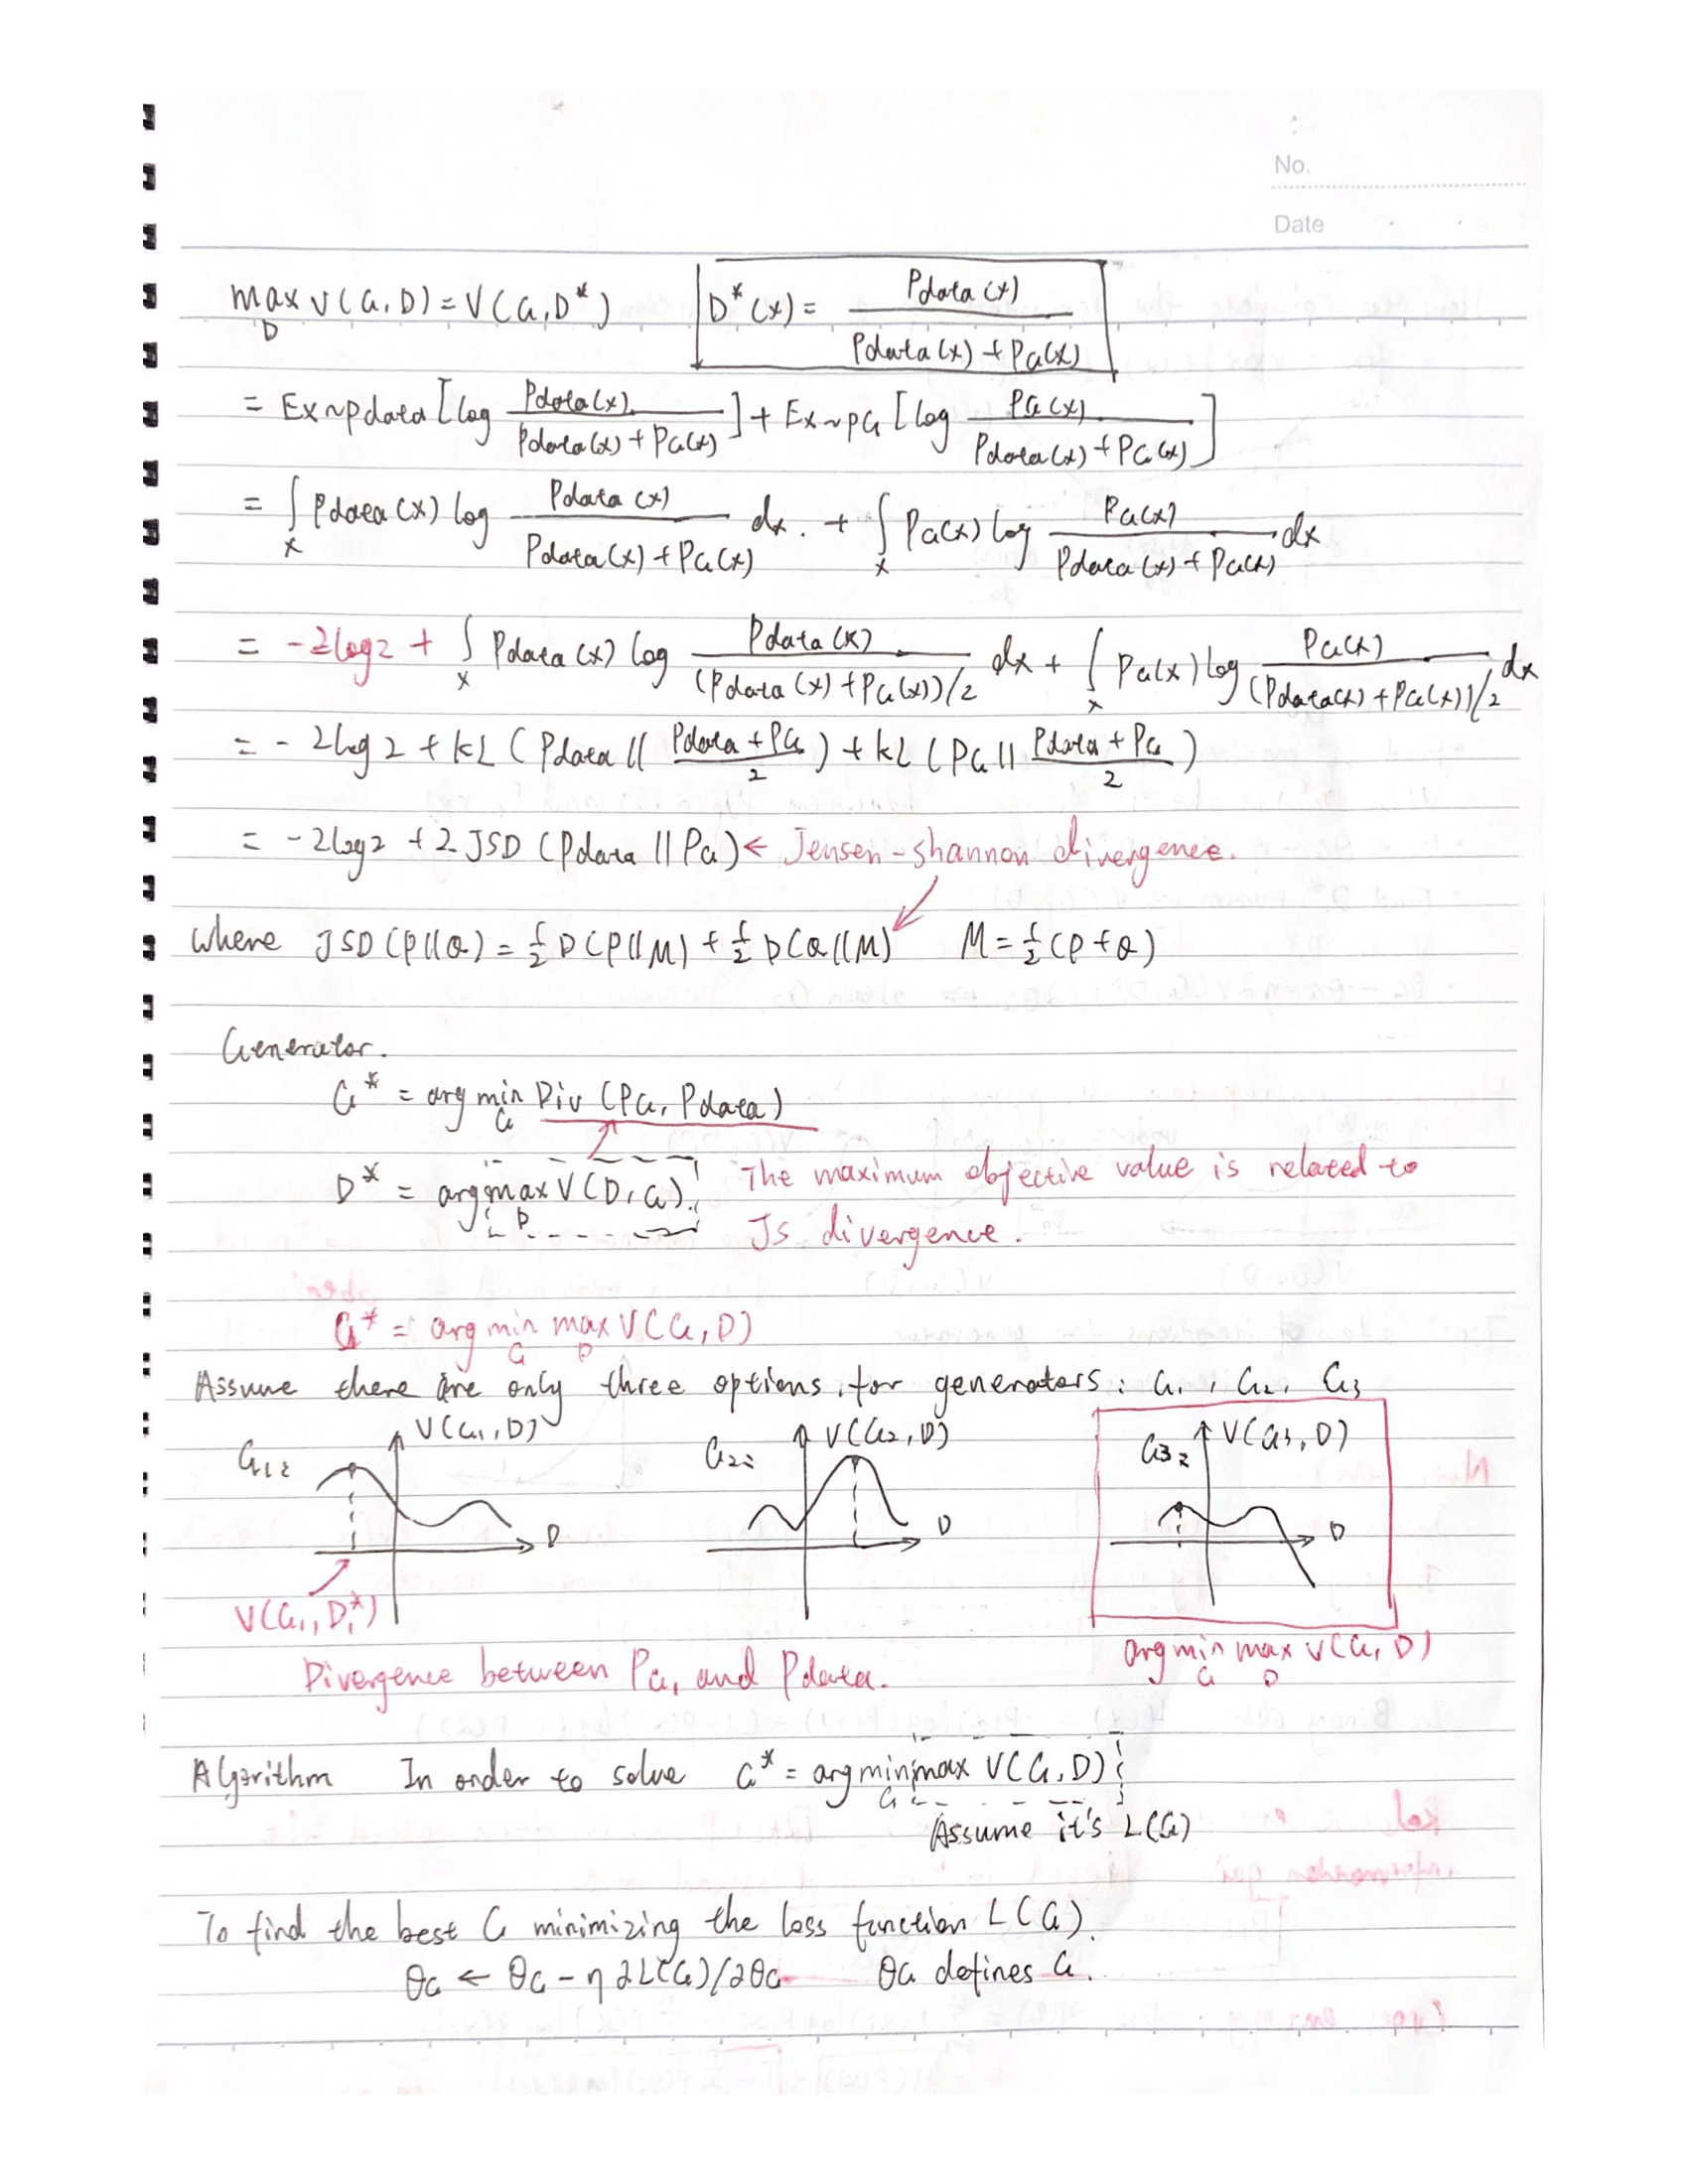 No.
Date
max V(G, D) = V(G, D*)    D*(x) = Pdata(x) / (Pdata(x) + PG(x))
D
= Ex~pdata [log Pdata(x) / (Pdata(x) + PG(x))] + Ex~pG [log PG(x) / (Pdata(x) + PG(x))]
= ∫x Pdata(x) log Pdata(x) / (Pdata(x) + PG(x)) dx. + ∫x PG(x) log PG(x) / (Pdata(x) + PG(x)) dx
= -2log2 + ∫x Pdata(x) log Pdata(x) / ((Pdata(x) + PG(x))/2) dx + ∫x PG(x) log PG(x) / ((Pdata(x) + PG(x))/2) dx
= -2log2 + KL (Pdata || (Pdata + PG)/2) + KL (PG || (Pdata + PG)/2)
= -2log2 + 2 JSD (Pdata || PG) ← Jensen-shannon divergence.
where JSD (P||Q) = 1/2 D(P||M) + 1/2 D(Q||M)    M = 1/2 (P + Q)
Generator.
G* = arg min Div (PG, Pdata)
G
D* = arg max V(D, G).    The maximum objective value is related to
D
Js divergence.
G* = arg min max V(G, D)
G D
Assume there are only three options for generators: G1, G2, G3
G1: V(G1, D)    G2: V(G2, D)    G3: V(G3, D)
D    D    D
V(G1, D1*)
Divergence between PG1 and Pdata.    arg min max V(G, D)
G D
Algorithm    In order to solve    G* = arg min max V(G, D)
G
Assume it's L(G)
To find the best G minimizing the loss function L(G).
θG ← θG - η ∂L(G)/∂θG    θG defines G.